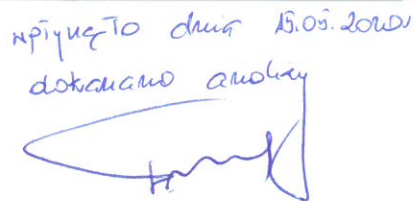 wpłynęło dnia 15.05.2020r
dokonano analizy